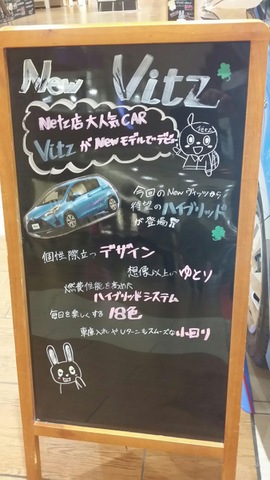 New Vitz
Netz店大人気CAR
VitzがNewモデルでデビュー
今回のNewヴィッツから
待望のハイブリッド
が登場!!
個性際立つデザイン
想像以上のゆとり
燃費性能を高めた
ハイブリッドシステム
毎日を楽しくする 18色
車庫入れやUターンもスムーズな小回り